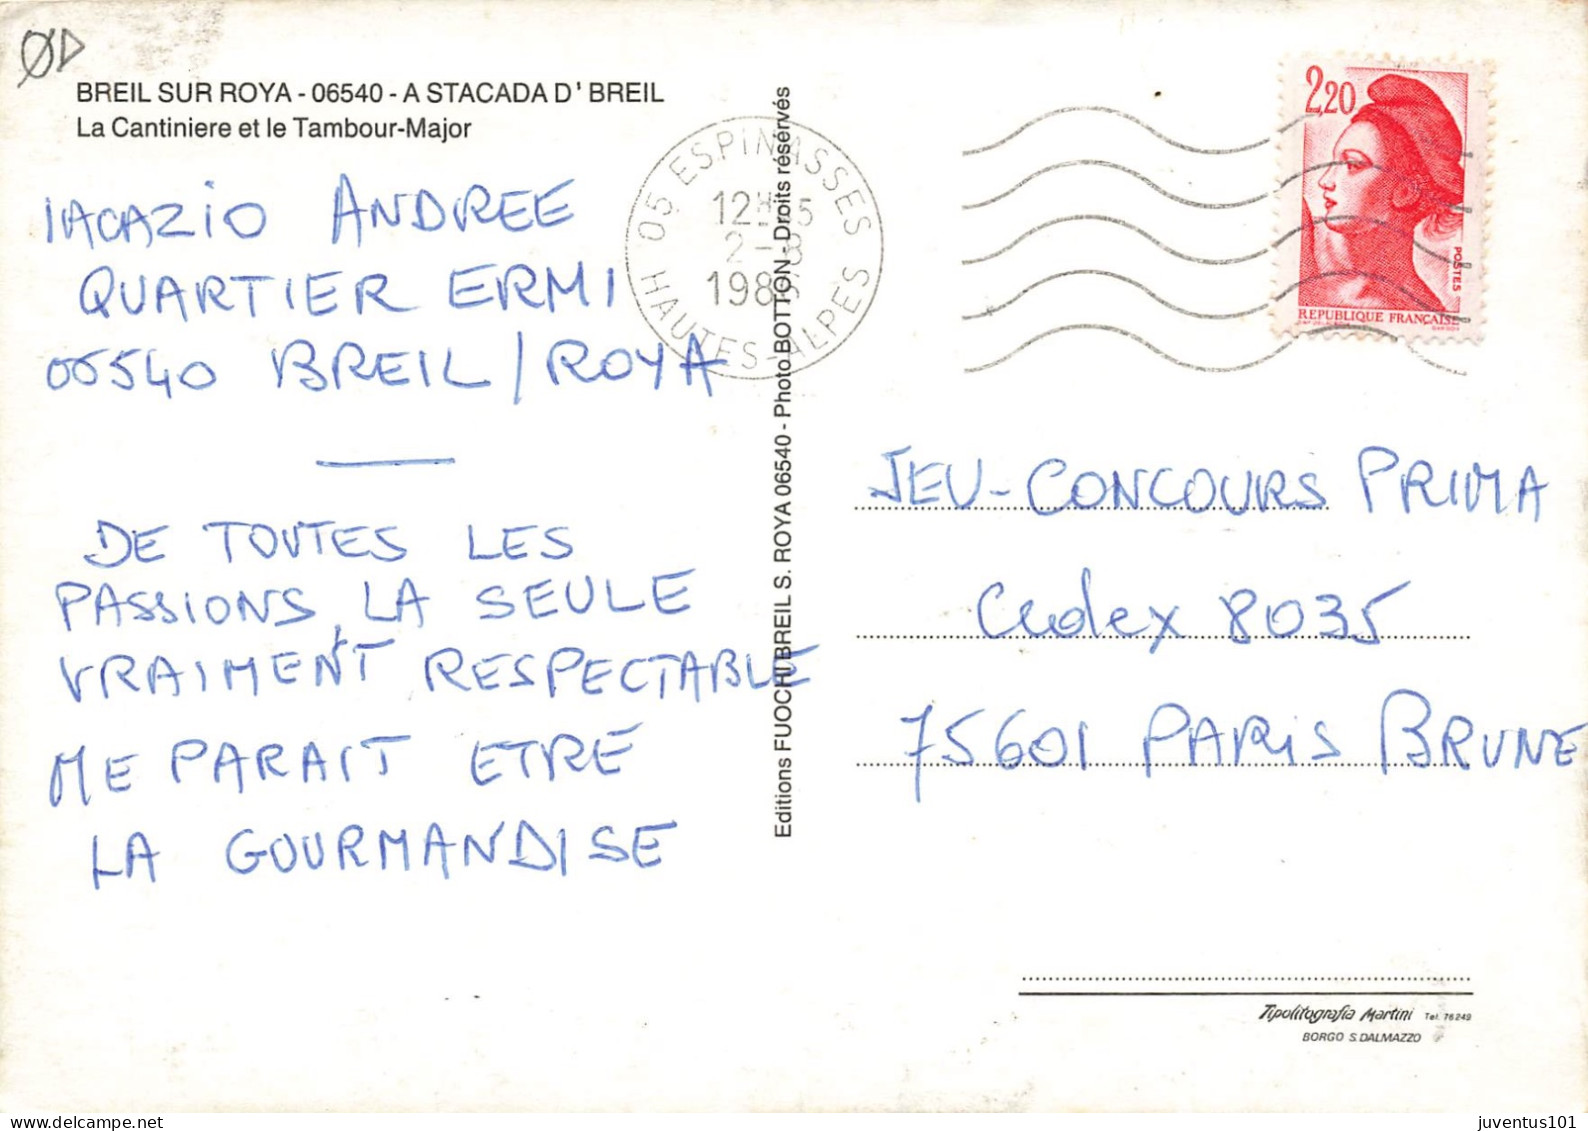 BREIL SUR ROYA - 06540 - A STACADA D' BREIL
La Cantiniere et le Tambour-Major
IACAZIO ANDREE
QUARTIER ERMI
06540 BREIL / ROYA
DE TOUTES LES
PASSIONS, LA SEULE
VRAIMENT RESPECTABLE
ME PARAIT ETRE
LA GOURMANDISE
Editions FUOCHI BREIL S. ROYA 06540 - Photo BOTTON - Droits résérvés
05 ESPINASSES
2 - 8
HAUTES-ALPES
2,20
POSTES
REPUBLIQUE FRANÇAISE
JEU-CONCOURS PRIMA
Cedex 8035
75601 PARIS BRUNE
Tipolitografia Martini Tel. 76249
BORGO S. DALMAZZO
juventus101